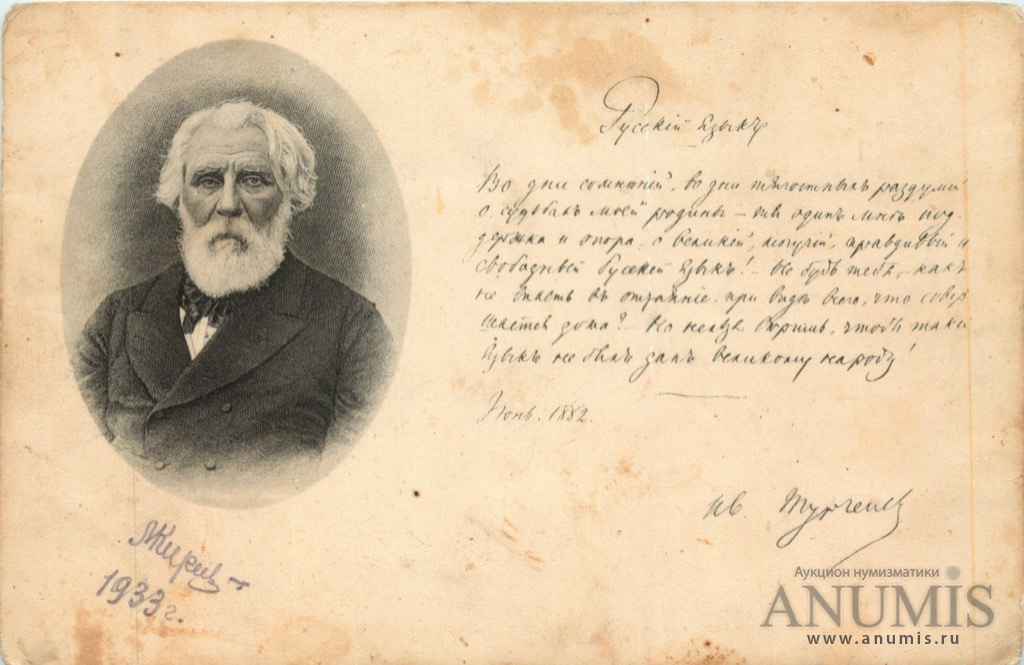 Русскій языкъ
Во дни сомнѣній, во дни тягостныхъ раздумій
о судьбахъ моей родины – ты одинъ мнѣ под-
держка и опора, о великій, могучій, правдивый и
свободный Русскій языкъ! – Не будь тебя – какъ
не впасть въ отчаяніе при видѣ всего, что совер
шается дома? – Но нельзя вѣрить, чтобы такой
языкъ не былъ данъ великому народу!
Іюнь. 1882.
Ив. Тургеневъ
1933 г.
Аукцион нумизматики
ANUMIS
www.anumis.ru